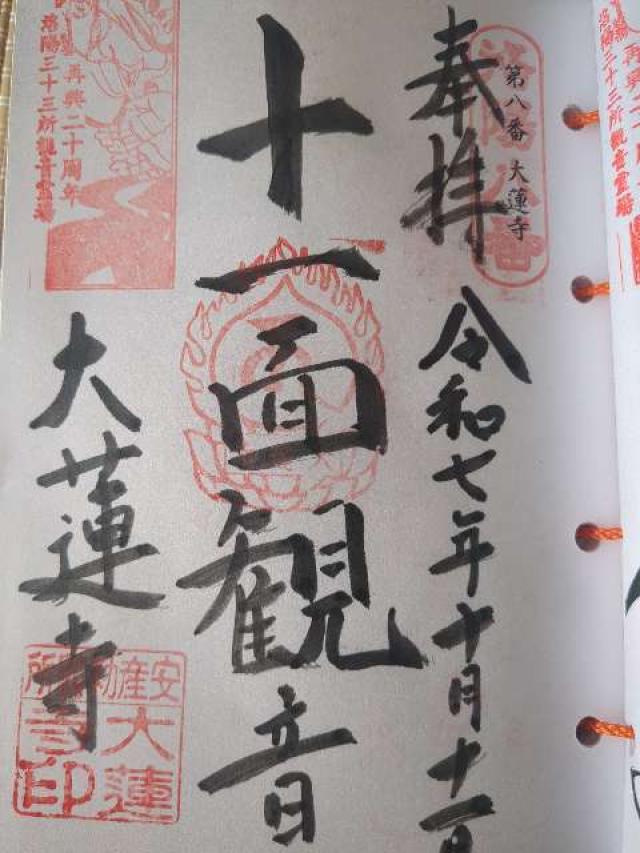 奉拝
第八番 大蓮寺
令和七年十月十一日
十一面観音
大蓮寺
再興二十周年
洛陽三十三所観音霊場
安産勧所
大蓮
寺印
再興二十周
洛陽三十三所観音霊場